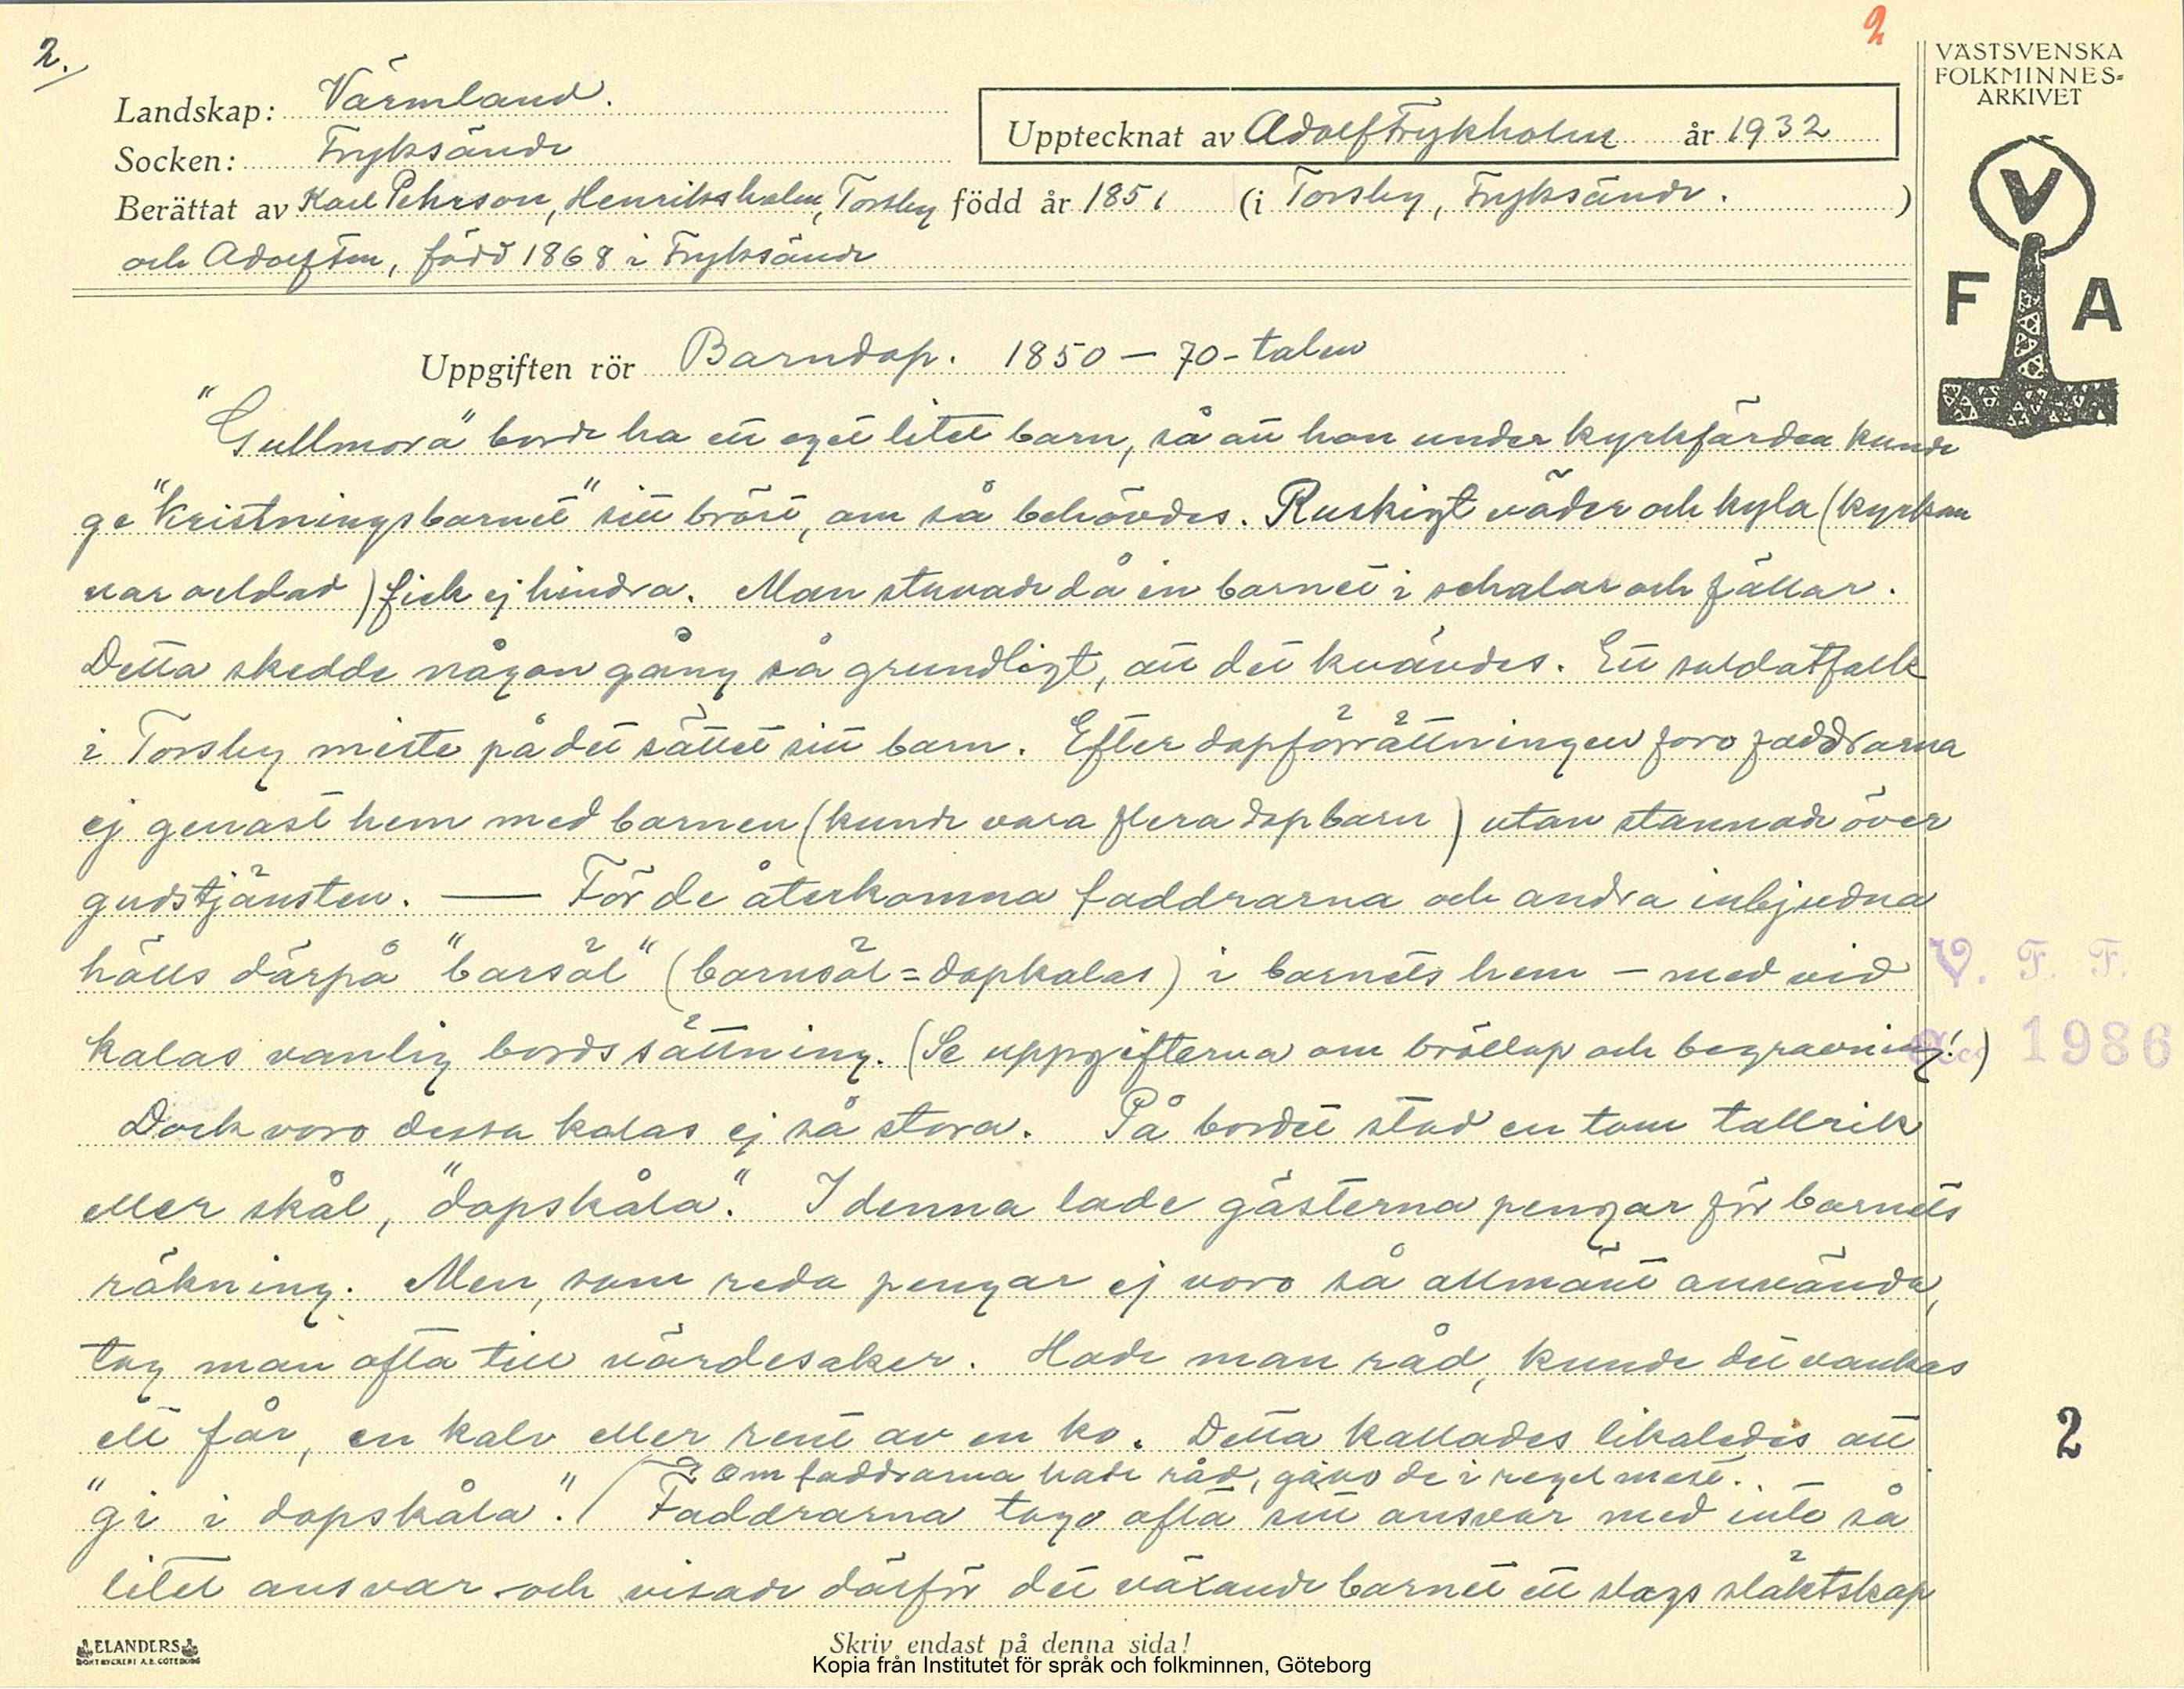 2.
2
VÄSTSVENSKA
FOLKMINNES=
ARKIVET
Landskap: Värmland.
Upptecknat av Adolf Frykholm år 1932
Socken: Fryksände
Berättat av Karl Pehrson, Henriksholm, Torsby född år 1851 (i Torsby, Fryksände. )
och Adolf Em, född 1868 i Fryksände
V
F A
Uppgiften rör Barndop. 1850–70-talen
"Gullmora" borde ha ett eget litet barn, så att hon under kyrkfärden kunde
ge "kristningsbarnet" sitt bröst, om så behövdes. Ruskigt väder och kyla (kyrkan
var oeldad) fick ej hindra. Man stuvade då in barnet i schalar och fällar.
Detta skedde någon gång så grundligt, att det kvävdes. Ett soldatfolk
i Torsby miste på det sättet sitt barn. Efter dopförrättningen foro faddrarna
ej genast hem med barnen (kunde vara flera dopbarn) utan stannade över
gudstjänsten. — För de återkomna faddrarna och andra inbjudna
hölls därpå "barsöl" (barnsöl = dopkalas) i barnets hem – med vid
V. F. F.
kalas vanlig bordssättning. (Se uppgifterna om bröllop och begravning!)
Acc 1986
Dock voro dessa kalas ej så stora. På bordet stod en tom tallrik
eller skål, "dopskåla". I denna lade gästerna pengar för barnets
räkning. Men, som reda pengar ej voro så allmänt använda,
tog man ofta till värdesaker. Hade man råd, kunde det vankas
ett får, en kalv eller rent av en ko. Detta kallades likaledes att
2
Om faddrarna hade råd, gåvo de i regel mest.
"gi i dopskåla". Faddrarna togo ofta sitt ansvar med inte så
litet ansvar och visade därför det växande barnet ett slags släktskap
ELANDERS
BOKTRYCKERI A.B. GÖTEBORG
Skriv endast på denna sida!
Kopia från Institutet för språk och folkminnen, Göteborg